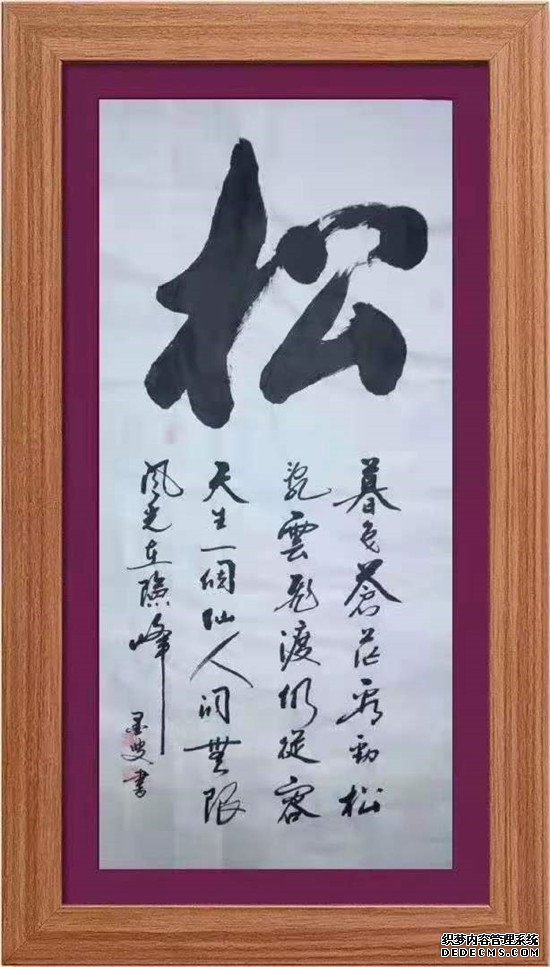 松
暮色蒼茫看勁松
亂雲飛渡仍從容
天生一個仙人洞無限
風光在險峰
墨叟書
织梦内容管理系统
DEDECMS.COM